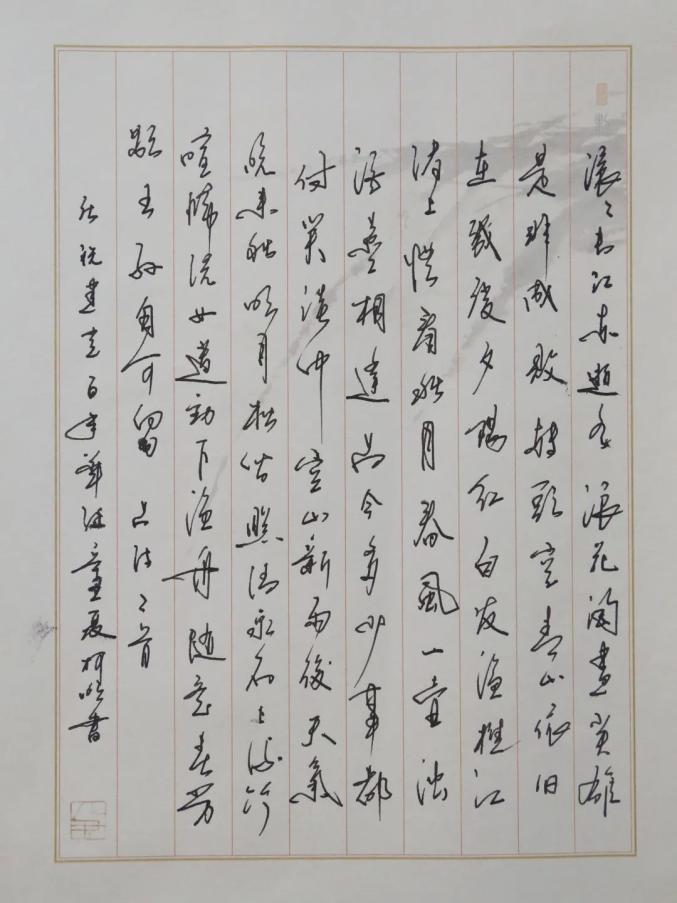 滚滚长江东逝水浪花淘尽英雄
是非成败转头空青山依旧
在几度夕阳红白发渔樵江
渚上惯看秋月春风一壶浊
酒喜相逢古今多少事都
付笑谈中空山新雨後天气
晚来秋明月松间照清泉石上流竹
喧归浣女莲动下渔舟随意春芳
歇王孙自可留 古诗二首
庆祝建党百年华诞童夏明书